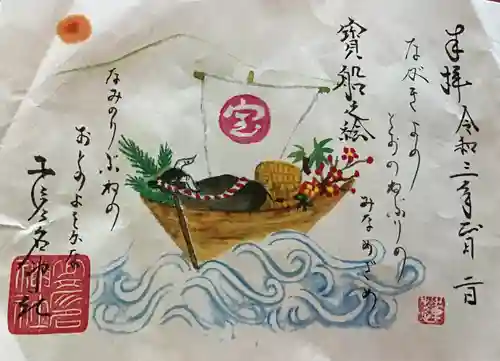 奉拝 令和三年正月二日
寳船之絵
ながきよの
とおのねぶりの
みなめざめ
宝
なみのりぶねの
おとのよきかな